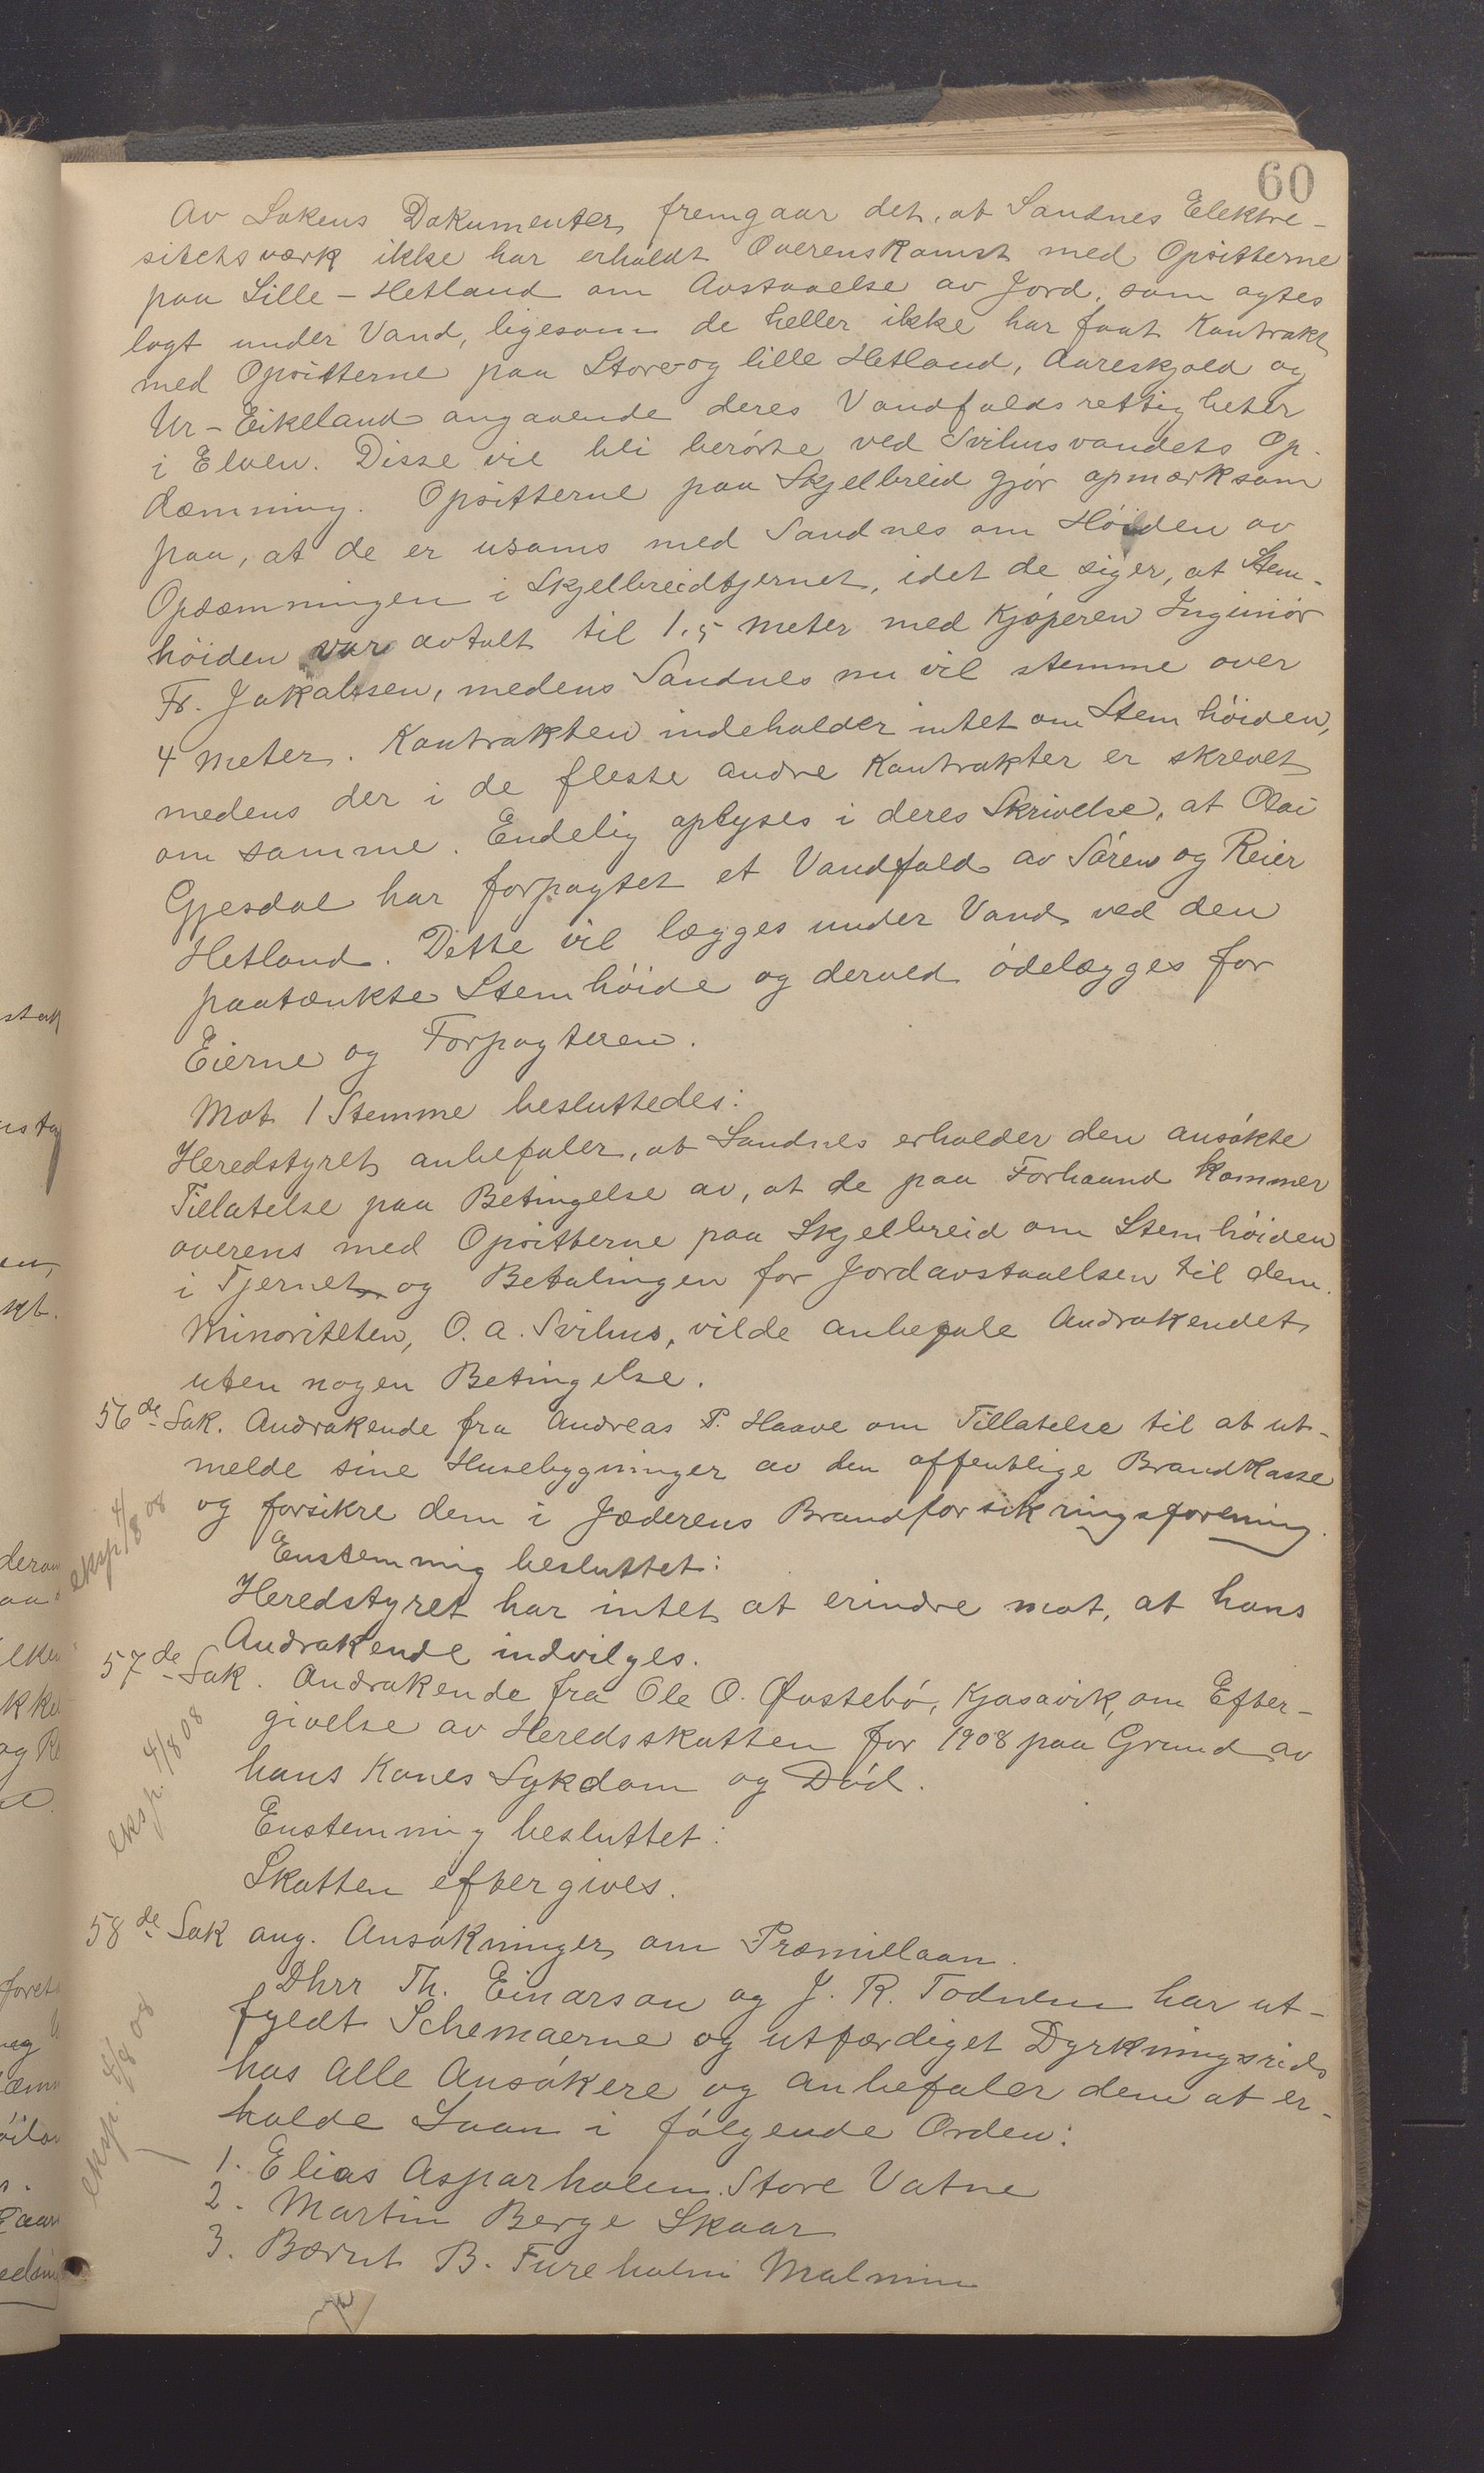 60
Av Sakens Dokumenter fremgaar det, at Sandnes Elektre-
sitetsværk ikke har erholdt Overenskomst med Opsitterne
paa Lille-Hetland om Avstaaelse av Jord, som agtes
lagt under Vand, ligesom de heller ikke har faat Kontrakt
med Opsitterne paa Store og lille Hetland, Aareskjold og
Ur-Eikeland angaaende deres Vandfaldsrettigheter
i Elven. Disse vil bli berørte ved Svihusvandets Op-
dæmning. Opsitterne paa Skjelbreid gjør opmærksom
paa, at de er usams med Sandnes om Høiden av
Opdæmningen i Skjelbreidtjernet, idet de siger, at Stem-
høiden var avtalt til 1,5 Meter med Kjøperen Ingeniør
Fr. Jakobsen, medens Sandnes nu vil stemme over
4 Meter. Kontrakten indeholder intet om Stemhøiden,
medens der i de fleste andre Kontrakter er skrevet
om samme. Endelig oplyses i deres Skrivelse, at Olai
Gjesdal har forpagtet et Vandfald av Søren og Reier
Hetland. Dette vil lægges under Vand ved den
paatænkte Stemhøide og derved ødelægges for
Eierne og Forpagteren.
Mot 1 Stemme besluttedes:
Heredstyret anbefaler, at Sandnes erholder den ansøkte
Tillatelse paa Betingelse av, at de paa Forhaand kommer
overens med Opsitterne paa Skjelbreid om Stemhøiden
i Tjernet og Betalingen for Jordavstaaelsen til dem.
Minoriteten, O. A. Svihus, vilde anbefale Andrakendet
uten nogen Betingelse.
56de Sak. Andrakende fra Andreas P. Haave om Tillatelse til at ut-
melde sine Husebygninger av den offentlige Brandkasse
og forsikre dem i Jæderens Brandforsikringsforening.
eksp. 4/8 08
Enstemmig besluttet:
Heredstyret har intet at erindre mot, at hans
Andrakende indvilges.
57de Sak. Andrakende fra Ole O. Øvstebø, Kjosavik, om Efter-
givelse av Heredsskatten for 1908 paa Grund av
hans Kones Sykdom og Død.
eksp. 4/8 08
Enstemmig besluttet:
Skatten eftergives.
58de Sak ang. Ansøkninger om Præmielaan.
Dhrr Th. Einarson og J. R. Todnem har ut-
fyldt Schemaerne og utfærdiget Dyrkningsrids
hos alle Ansøkere og anbefaler dem at er-
holde Laan i følgende Orden:
eksp. 4/8 08
1. Elias Asparholen Store Vatne
2. Martin Berge Skaar
3. Bærnt B. Fureholm Malmin